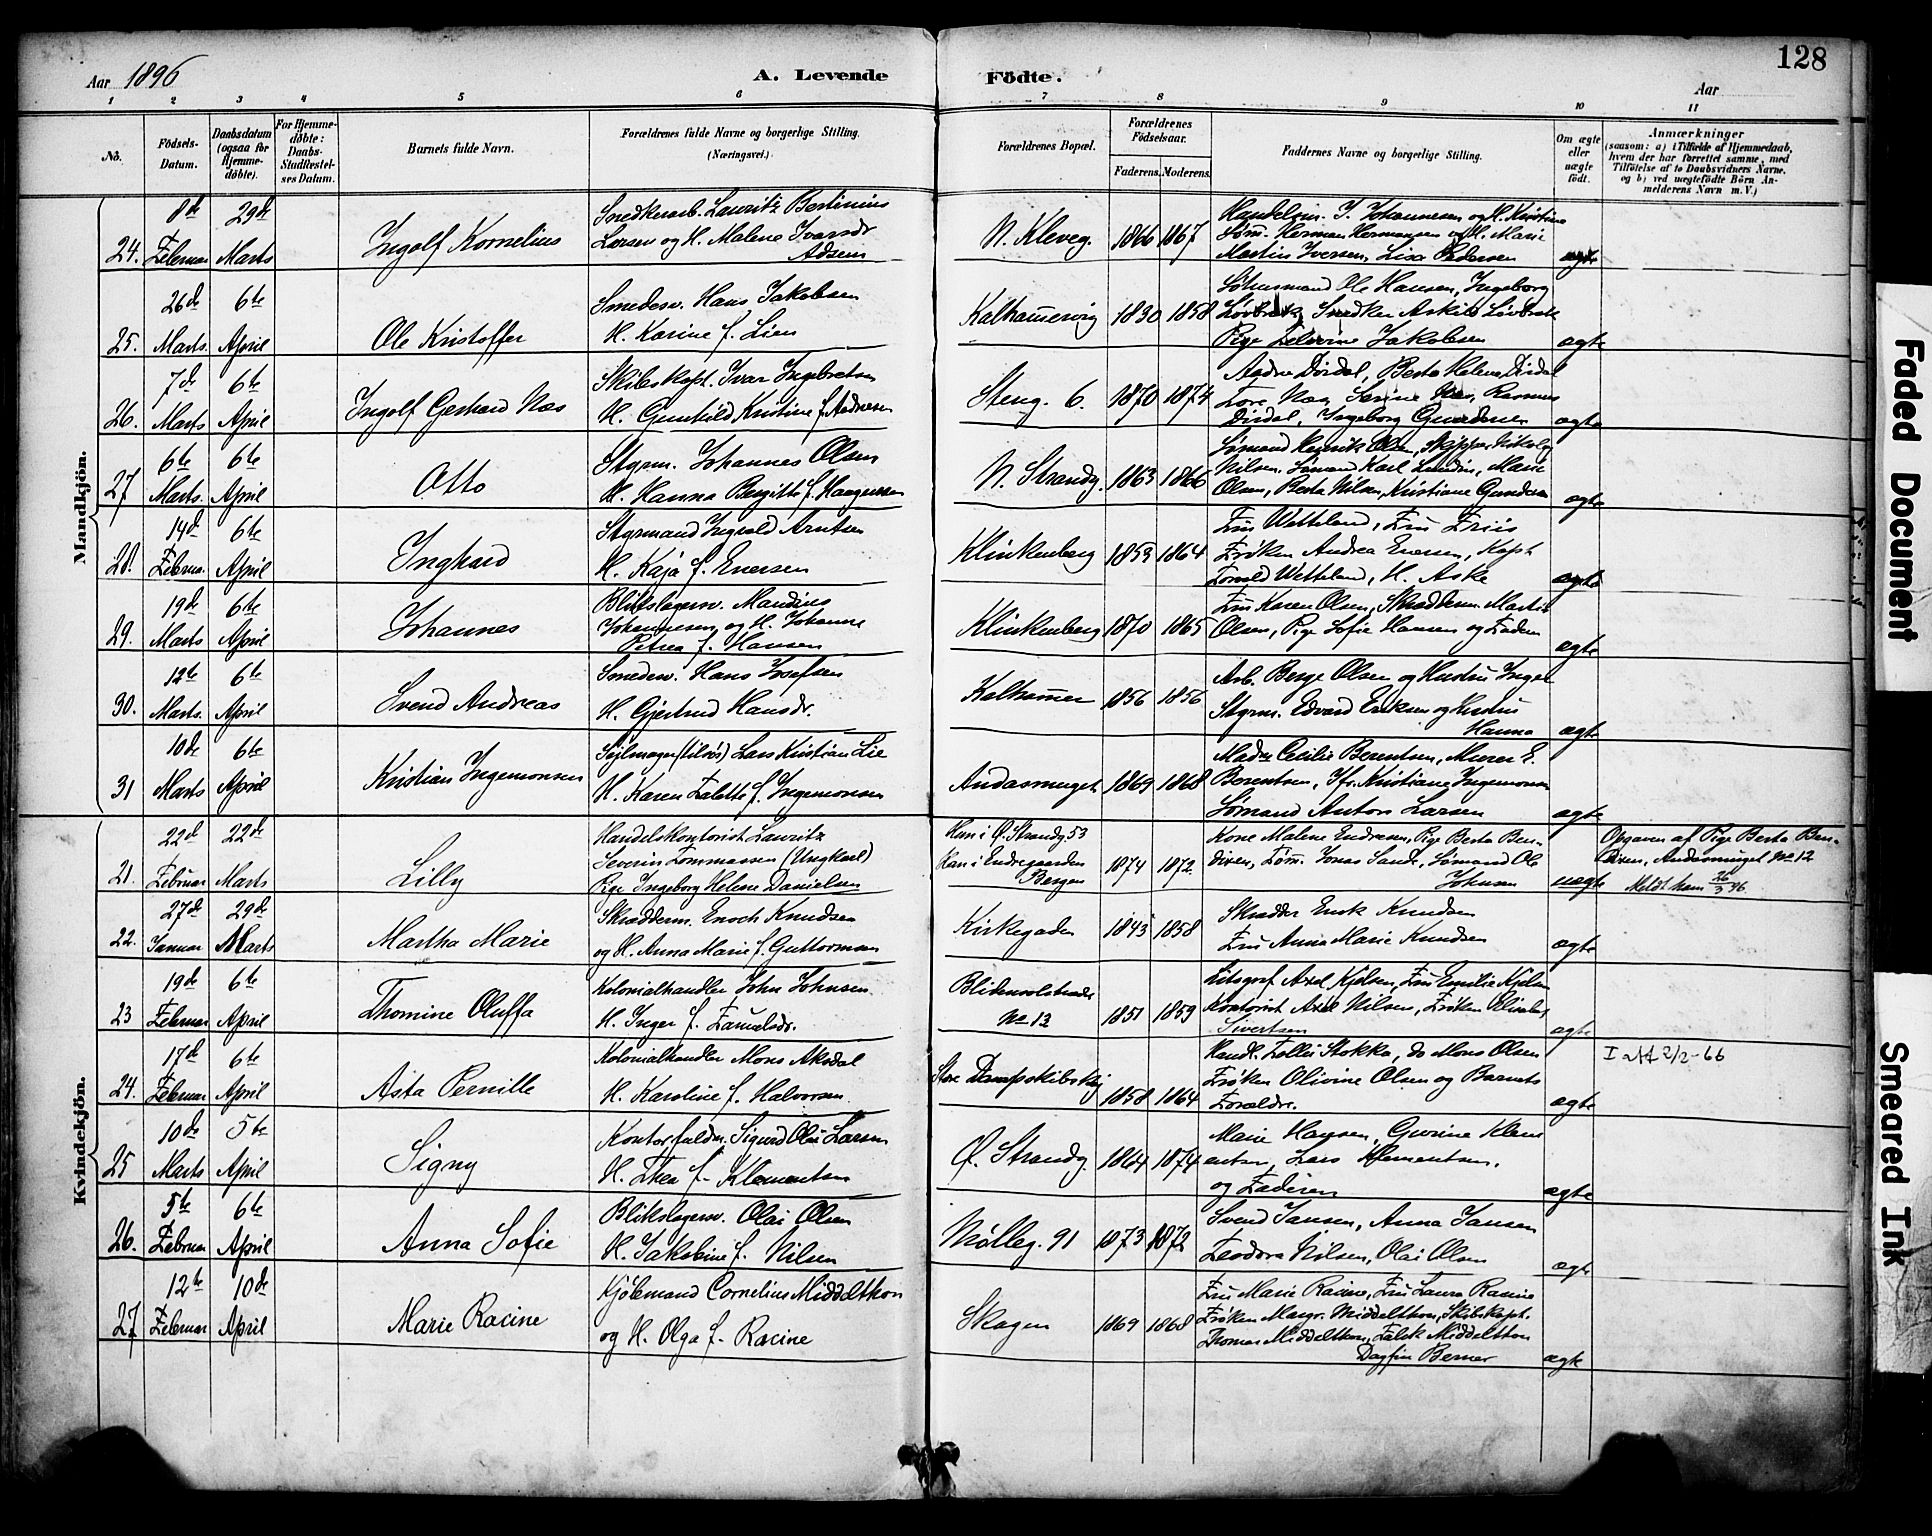 128
Aar 1896
A. Levende
Födte.
Aar
1 2 3 4 5 6 7 8 9 10 11
No.
Födsels-
Datum.
Daabsdatum
(ogsaa for
Hjemme-
døbte).
For Hjemme-
døbte:
Daabs-
Stadfæstel-
ses Datum.
Barnets fulde Navn.
Forældrenes fulde Navne og borgerlige Stilling.
(Næringsvei.)
Forældrenes Bopæl.
Forældrenes
Födselsaar.
Faderens. Moderens.
Faddernes Navne og borgerlige Stilling.
Om ægte
eller
uægte
født.
Anmærkninger
(saasom: a) i Tilfælde af Hjemmedaab,
hvem der har forrettet samme, med
Tilföielse af to Daabsvidners Navne.
og b) ved uægtefödte Börn An-
melderens Navn m.V.)
Mandkjön.
24. 8de Februar 29de Marts Ingolf Kornelius
Snedkerarb. Lauritz Bertinius
Larsen og H. Malene Ivarsdr
Adsein
N. Kleveg. 1866 1867
Handelsm. J. Johannesen og H. Kristine
Søm. Herman Hermansen og H. Marie
Martin Iversen, Lisa Pedersen ægte
25. 26de Marts. 6te April Ole Kristoffer
Smedesv. Hans Jakobsen
H. Karine f. Lien
Kalhammervig 1830 1858
Ole Hansen, Ingeborg
Løvbrek, Snedker Askild Løvbrek
Pige Jakobsen ægte
26. 7de Marts 6te April Ingolf Gerhard Næs
Skibskapt. Ivar Ingebretsen
H. Gunhild Kristine f. Andresen
Steng. 6. 1870 1874
Aadne Dirdal, Berta Helene Dirdal
Tore Næs, Rasmus
Dirdal, Ingeborg Gundersen ægte
27 6te Marts. 6te April Otto
Styrm. Johannes Olsen
H. Hanna Bergitte f. Haagensen
N. Strandg. 1863 1866
Sømand Henrik Olsen, Skipper Nikolay
Nilsen. Sømand Karl Lundin, Marie
Olsen, Berta Nilsen, Kristiane Gundersen ægte
28. 14de Februar 6te April Inghard
Styrmand Ingvald Arntsen
H. Kaja f. Enersen
Klinkenberg 1853 1864
Fru Wetteland, Fru Friis
Frøken Andrea Enersen, Kapt
Tomold Wetteland, H. Aske ægte
29. 19de Marts 6te April Johannes
Blikslagersv. Mandius
Johannesen og H. Johanne
Petrea f. Hansen
Klinkenberg 1870 1865
Fru Karen Olsen, Skrædderm. Martin
Olsen, Pige Sofie Hansen og Faderen ægte
30. 12te Marts. 6te April Svend Andreas
Smedesv. Hans Josefsen
H. Gjertrud Hansdr.
Kalhammer 1856 1856
Arb. Berge Olsen og Hustru Inger
Styrm. Edvard Eriksen og Hustru
Hanna ægte
31 10de Marts 6te April Kristian Ingemonsen
Sejlmager (tilsøs) Lars Kristian Lie
H. Karen Talette f. Ingemonsen
Andasmuget 1869 1868
Madm Cecilie Berentsen, Murer E.
Berentsen, Jfr. Kristiane Ingemonsen
Sømand Anton Larsen ægte
Kvindekjön.
21. 22de Februar 22de Marts Lilly
Handelskontorist Lauritz
Severin Tommassen (Ungkarl)
Pige Ingeborg Helene Danielsen
Hun i Ø. Strandg. 53
Han i Endregaarden
Bergen 1874 1872
Kone Malene Endresen, Pige Berta Ben-
dixen, Tøm. Jonas Sande, Sømand Ole
Johnsen uægte
Opgaven af Pige Berta Ben-
dixen, Andasmuget No 12
Meldt ham 26/3 96
22. 27de Januar 29de Marts Martha Marie
Skrædderm. Enoch Knudsen
og H. Anna Marie f. Guttormsen
Kirkegaden 1843 1858
Skrædder Enok Knudsen
Fru Anna Marie Knudsen ægte
23 19de Februar 6te April Thomine Oluffa
Kolonialhandler John Johnsen
H. Inger f. Samuelsdr.
Blidensolstræde
No 13 1851 1859
Litograf Axel Kjelsen, Fru Emilie Kjelsen
Kontorist Axel Nilsen, Frøken Elisabet
Sivertsen ægte
24. 17de Februar 6te April Asta Pernille
Kolonialhandler Mons Aksdal
H. Karoline f. Halvorsen.
Store Dampskibskaj 1858 1864
Handl. Tollei Stokka, do Mons Olsen
Frøken Olivine Olsen og Barnets
Forældre. ægte
I att 2/2-66
25 10de Marts 5te April Signy
Kontorfuldm. Sigurd Olai Larsen
H. Thea f. Klementsen
Ø. Strandg. 1864 1874
Marie Hansen, Gurine Klem
entsen, Lars Klementsen,
og Faderen ægte
26. 5te Februar 6te April Anna Sofie
Blikslagersv. Olai Olsen
H. Jakobine f. Nilsen
Mølleg. 91 1873 1872
Svend Jansen, Anna Jansen
Teodora Nilsen, Olai Olsen ægte
27 12te Februar 10de April Marie Racine
Kjøbmand Cornelius Middelthon
og H. Olga f. Racine
Skagen 1869 1868
Fru Marie Racine, Fru Laura Racine
Frøken Margr. Middelthon, Skibskapt.
Thomas Middelthon, Falck Middelthon
Dagfin Berner ægte
Faded Document
Smeared Ink